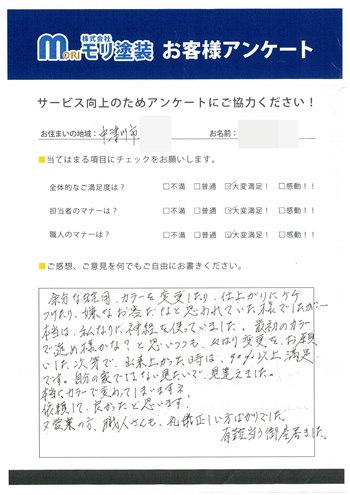 株式会社
MORI モリ塗装 お客様アンケート
サービス向上のためアンケートにご協力ください！
お住まいの地域： 中津川市 お名前：
■当てはまる項目にチェックをお願いします。
全体的なご満足度は？ □不満 □普通 ☑大変満足！ □感動！！
担当者のマナーは？ □不満 □普通 ☑大変満足！ □感動！！
職人のマナーは？ □不満 □普通 ☑大変満足！ □感動！！
■ご感想、ご意見を何でもご自由にお書きください。
カラーを変更したり、仕上がりにケチ
つけたり、嫌なお客だなと思われていた様でしたが…
本当は、私なりに神経を使っていました。最初のカラー
で進め様かな？と思いつつも、やはり変更をお願
いした次第で、出来上った時は、90％以上満足
です。自分の家ではない見たいで、見違えました。
本当にカラーで変わってしまいますネ
依頼して、良かったと思います。
又営業の方、職人さんも、礼儀正しい方ばかりでした。
有難当う御座居ました。